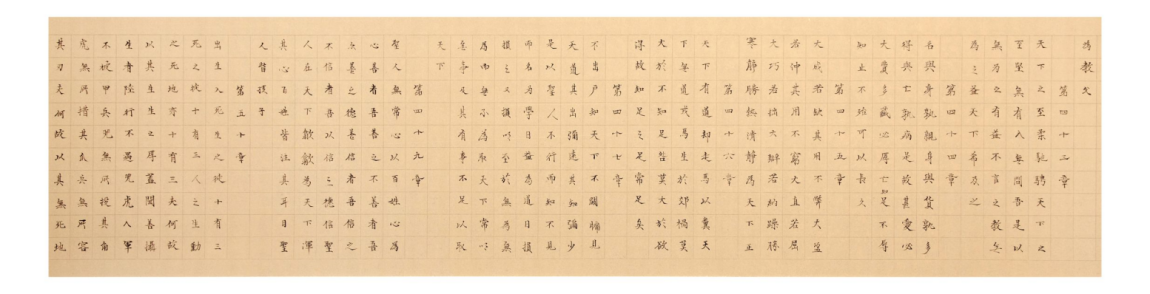 為教父
第四十三章
天下之至柔馳騁天下之
至堅無有入無間吾是以
無為之有益不言之教無
為之益天下希及之
第四十四章
名與身孰親身與貨孰多
得與亡孰病是故甚愛必
大費多藏必厚亡知足不辱
知止不殆可以長久
第四十五章
大成若缺其用不弊大盈
若沖其用不窮大直若屈
大巧若拙大辯若訥躁勝
寒靜勝熱清靜為天下正
第四十六章
天下有道却走馬以糞天
下無道戎馬生於郊禍莫
大於不知足咎莫大於欲
得故知足之足常足矣
第四十七章
不出戶知天下不闚牖見
天道其出彌遠其知彌少
是以聖人不行而知不見
而名為學日益為道日損
損之又損以至於無為無
為而無不為取天下常以
無事及其有事不足以取
天下
第四十九章
聖人無常心以百姓心為
心善者吾善之不善者吾
亦善之德善信者吾信之
不信者吾亦信之德信聖
人在天下歙歙為天下渾
其心百姓皆注其耳目聖
人皆孩子
第五十章
出生入死生之徒十有三
死之徒十有三人之生動
之死地亦十有三夫何故
以其生生之厚蓋聞善攝
生者陸行不遇兕虎入軍
不被甲兵兕無所投其角
虎無所措其爪兵無所容
其刃夫何故以其無死地